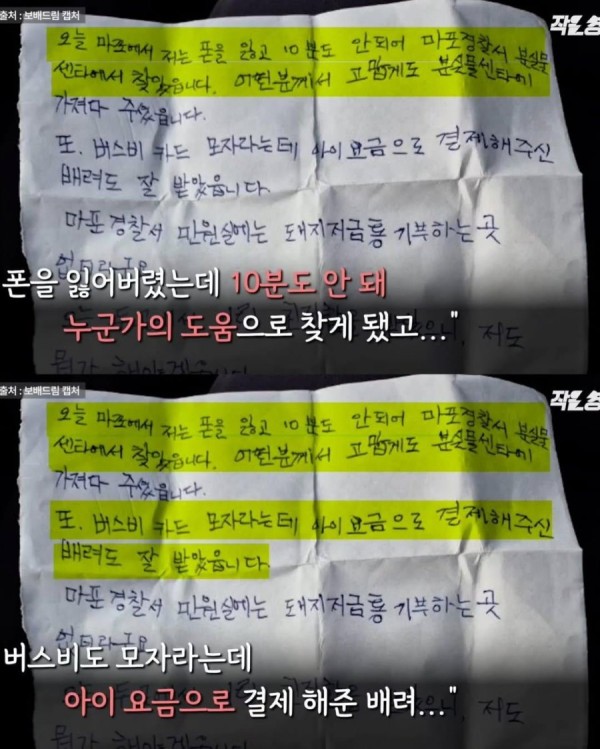 출처 : 보배드림 캡처
오늘 마포에서 저는 폰을 잃고 10분도 안되어 마포경찰서 분실물
센타에서 찾았읍니다. 어떤분께서 고맙게도 분실물센타에
가져다 주었읍니다.
또. 버스비 카드 모자라는데 아이 요금으로 결제해주신
배려도 잘 받았읍니다.
마포경찰서 민원실에는 돼지저금통 기부하는 곳
없더라구요
폰을 잃어버렸는데 10분도 안 돼
누군가의 도움으로 찾게 됐고..."
저도
뭔가
출처 : 보배드림 캡처
오늘 마포에서 저는 폰을 잃고 10분도 안되어 마포경찰서 분실물
센타에서 찾았읍니다. 어떤분께서 고맙게도 분실물센타에
가져다 주었읍니다.
또. 버스비 카드 모자라는데 아이 요금으로 결제해주신
배려도 잘 받았읍니다.
마포경찰서 민원실에는 돼지저금통 기부하는 곳
없더라구요
버스비도 모자라는데
아이 요금으로 결제 해준 배려..."
뭔가